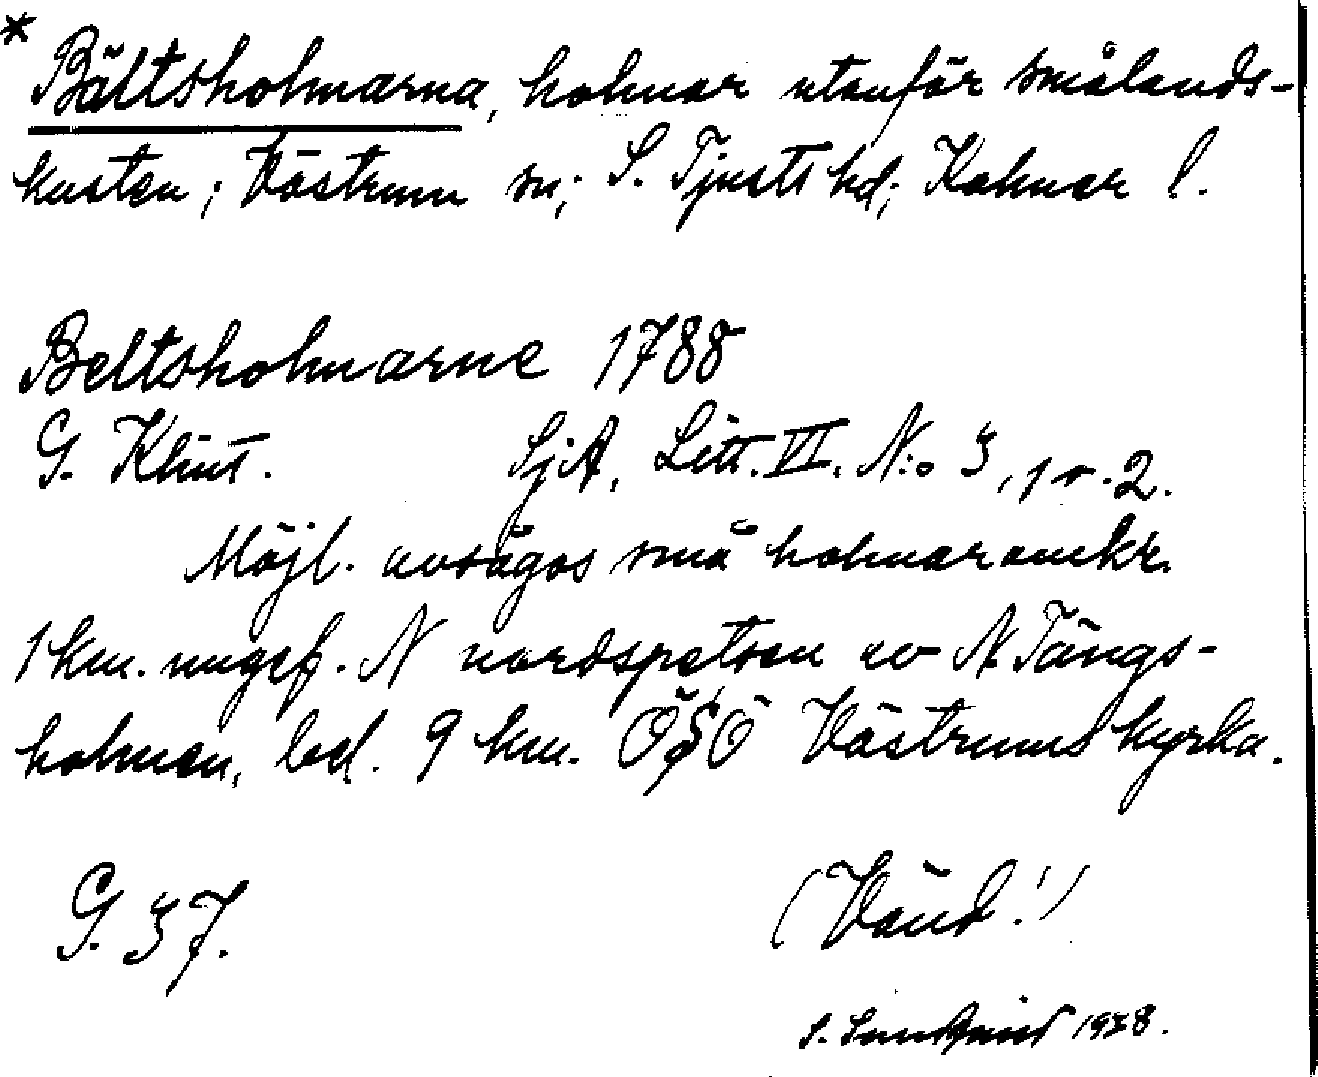 * Bältsholmarna, holmar utanför smålands-
kusten; Västrum sn; S. Tjusts hd; Kalmar l.
Beltsholmarne 1788
G. Klint. SjA, Litt. VI. N:o 3, 1 o. 2.
Möjl. avsågos små holmar omkr.
1 km. ungef. N nordspetsen av N. Tängs-
holmen, bel. 9 km. ÖSÖ Västrums kyrka.
G. 37.
(Vänd!)
S. 1938.